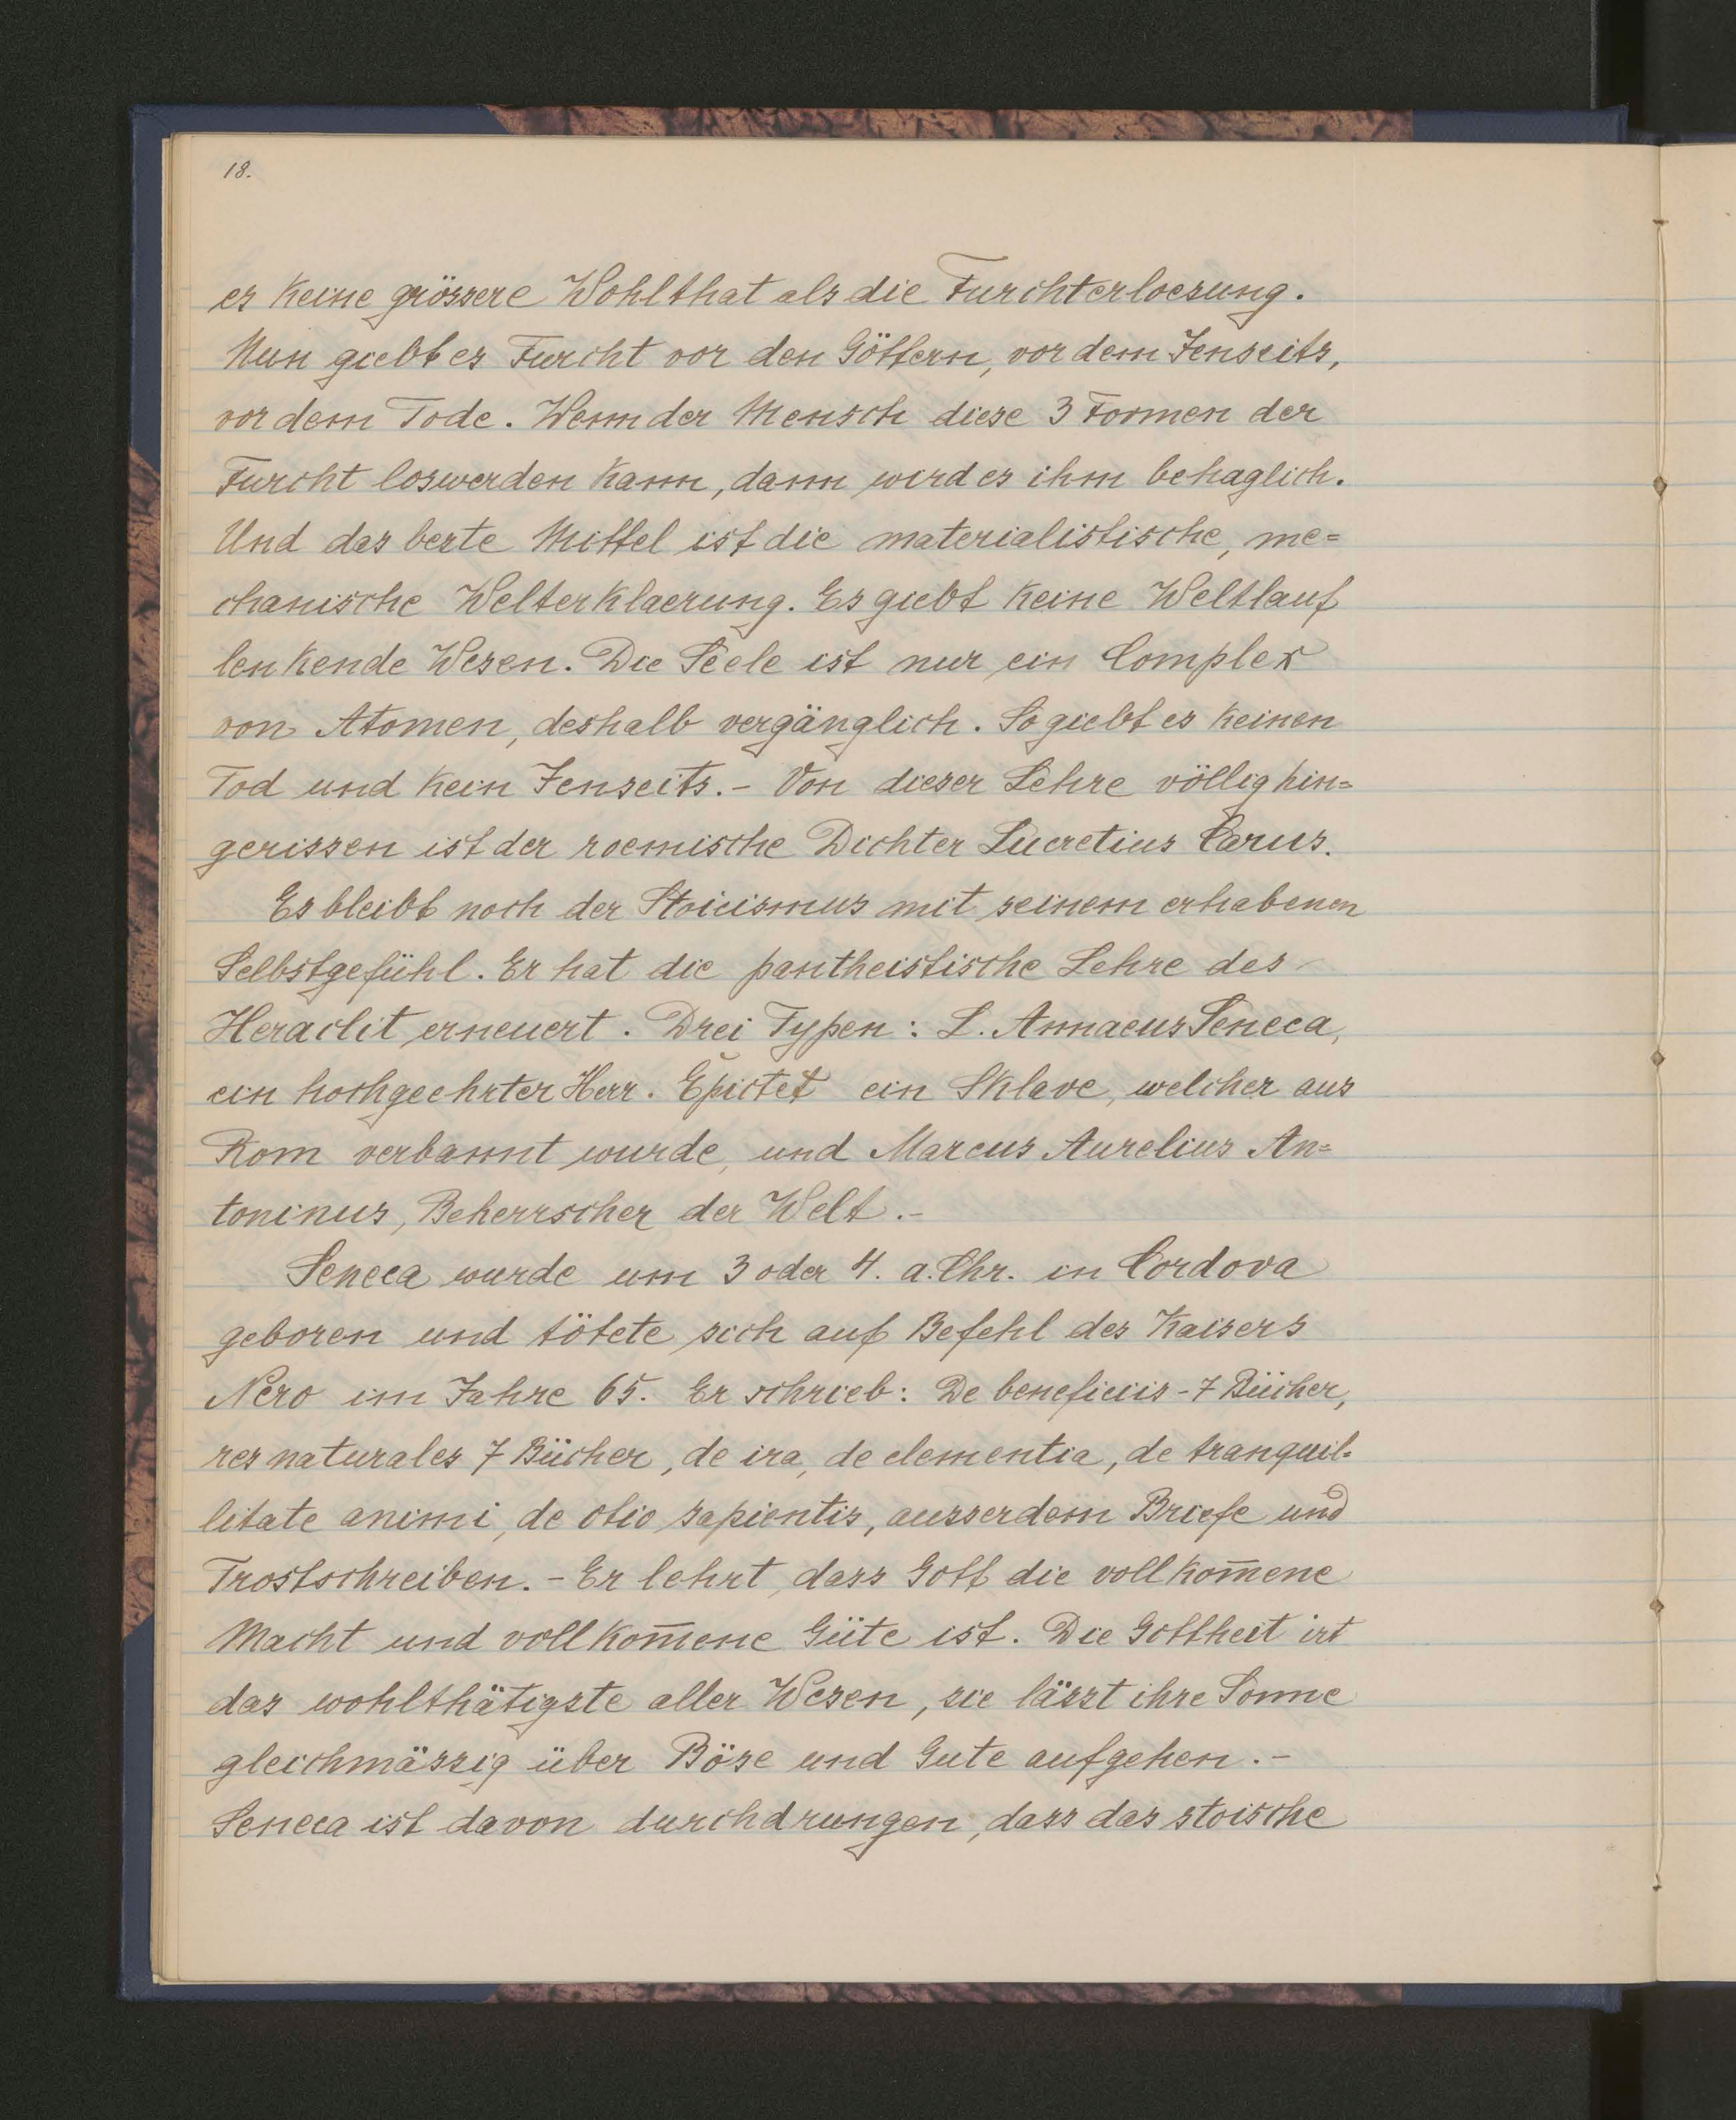 18.
es keine grössere Wohlthat als die Furchterloesung.
Nun giebt es Furcht vor den Göttern, vor dem Jenseits,
vor dem Tode. Wenn der Mensch diese 3 Formen der
Furcht loswerden kann, dann wird es ihm behaglich.
Und das beste Mittel ist die materialistische, me=
chanische Welterklaerung. Es giebt keine Weltlauf
lenkende Wesen. Die Seele ist nur ein Complex
von Atomen, deshalb vergänglich. So giebt es keinen
Tod und kein Jenseits.- Von dieser Lehre völlig hin=
gerissen ist der roemische Dichter Lucretius Carus.
Es bleibt noch der Stoicismus mit seinem erhabenen
Selbstgefühl. Er hat die pantheistische Lehre des
Heraclit erneuert. Drei Typen: L. Annaeus Seneca,
ein hochgeehrter Herr. Epictet ein Sklave, welcher aus
Rom verbannt wurde, und Marcus Aurelius An=
toninus, Beherrscher der Welt.-
Seneca wurde um 3 oder 4. a. Chr. in Cordova
geboren und tötete sich auf Befehl des Kaisers
Nero im Jahre 65. Er schrieb: De beneficiis - 7 Bücher,
res naturales 7 Bücher, de ira, de clementia, de tranquil-
litate animi, de otio sapientis, ausserdem Briefe und
Trostschreiben. - Er lehrt, dass Gott die vollkom̅ene
Macht und vollkom̅ene Güte ist. Die Gottheit ist
das wohlthätigste aller Wesen, sie lässt ihre Sonne
gleichmässig über Böse und Gute aufgehen.-
Seneca ist davon durchdrungen, dass das stoische